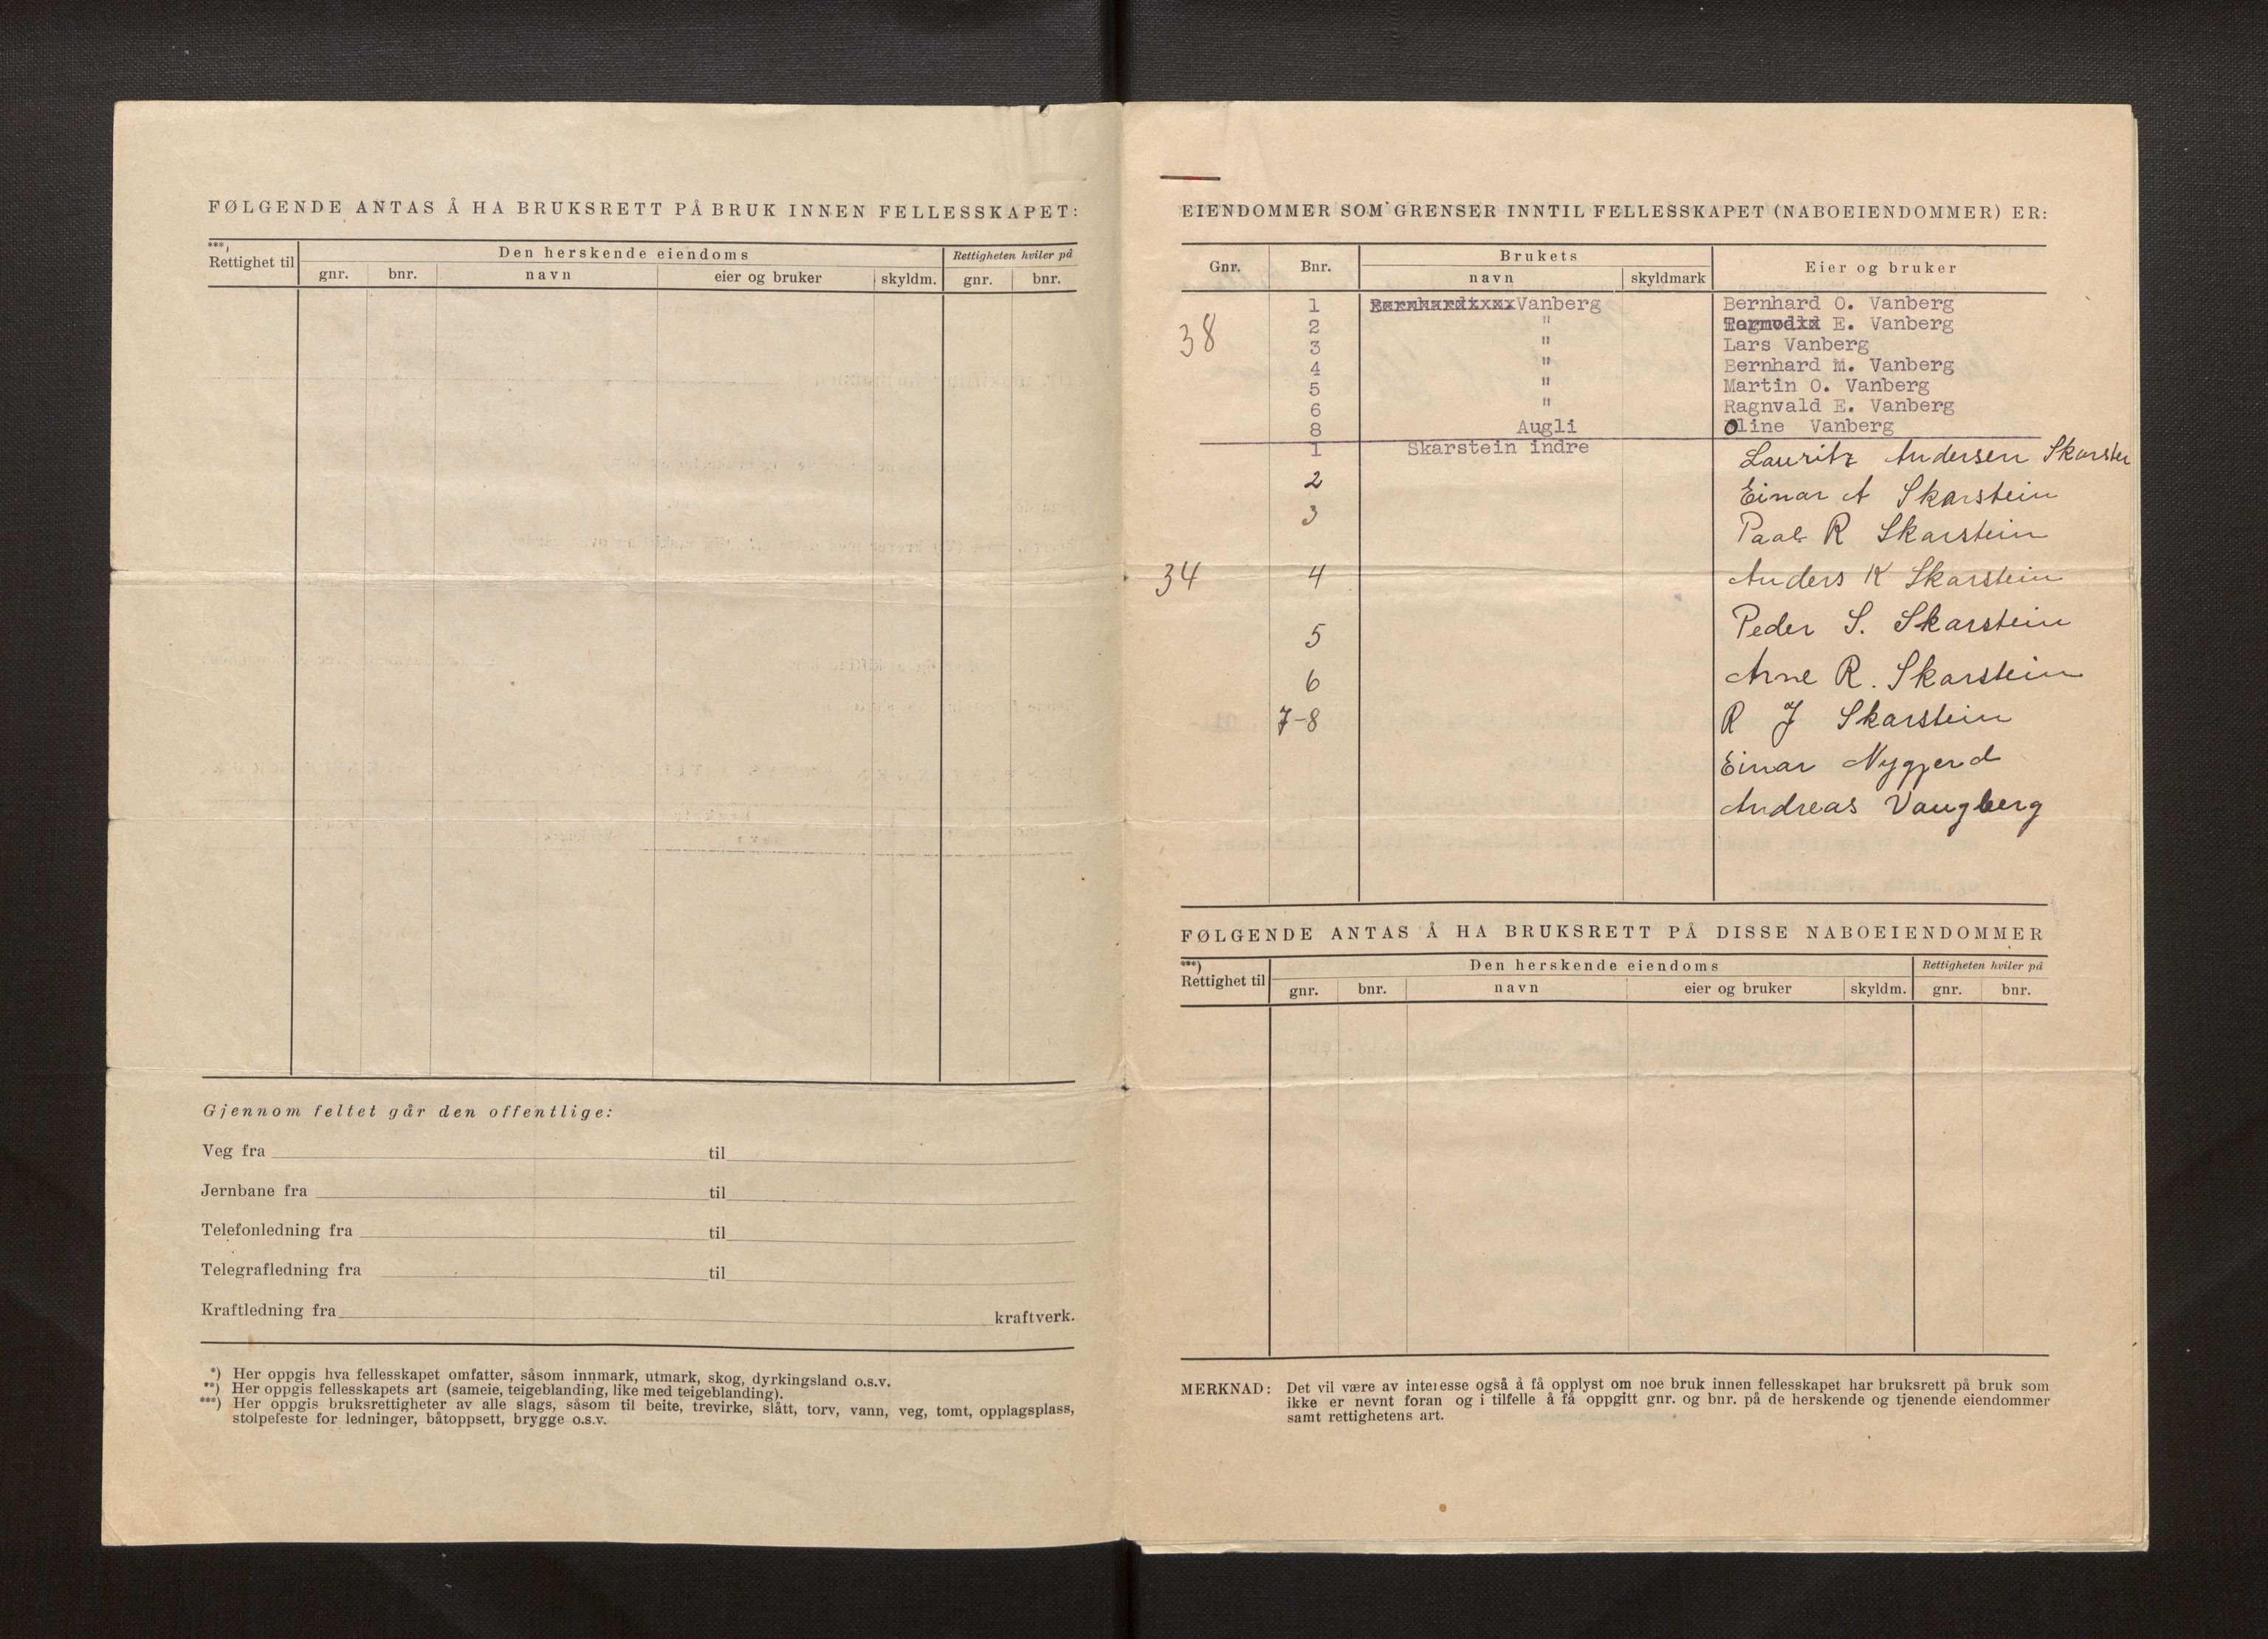 FØLGENDE ANTAS Å HA BRUKSRETT PÅ BRUK INNEN FELLESSKAPET:
***)
Rettighet til
Den herskende eiendoms
Rettigheten hviler på
gnr. bnr. navn eier og bruker skyldm. gnr. bnr.
Gjennom feltet går den offentlige:
Veg fra til
Jernbane fra til
Telefonledning fra til
Telegrafledning fra til
Kraftledning fra kraftverk.
*) Her oppgis hva fellesskapet omfatter, såsom innmark, utmark, skog, dyrkingsland o.s.v.
**) Her oppgis fellesskapets art (sameie, teigeblanding, like med teigeblanding).
***) Her oppgis bruksrettigheter av alle slags, såsom til beite, trevirke, slått, torv, vann, veg, tomt, opplagsplass,
stolpefeste for ledninger, båtoppsett, brygge o.s.v.
EIENDOMMER SOM GRENSER INNTIL FELLESSKAPET (NABOEIENDOMMER) ER:
Gnr. Bnr. Brukets Eier og bruker
navn skyldmark
1 Vanberg Bernhard O. Vanberg
38 2 " E. Vanberg
3 " Lars Vanberg
4 " Bernhard M. Vanberg
5 " Martin O. Vanberg
6 " Ragnvald E. Vanberg
8 Augli Oline Vanberg
1 Skarstein indre Lauritz Andersen
2 Einar A Skarstein
3 Paal R Skarstein
34 4 Anders K Skarstein
5 Peder S. Skarstein
6 Arne R. Skarstein
7-8 R J Skarstein
Einar Nygjerd
Andreas Vangberg
FØLGENDE ANTAS Å HA BRUKSRETT PÅ DISSE NABOEIENDOMMER
***)
Rettighet til
Den herskende eiendoms
Rettigheten hviler på
gnr. bnr. navn eier og bruker skyldm. gnr. bnr.
MERKNAD: Det vil være av interesse også å få opplyst om noe bruk innen fellesskapet har bruksrett på bruk som
ikke er nevnt foran og i tilfelle å få oppgitt gnr. og bnr. på de herskende og tjenende eiendommer
samt rettighetens art.